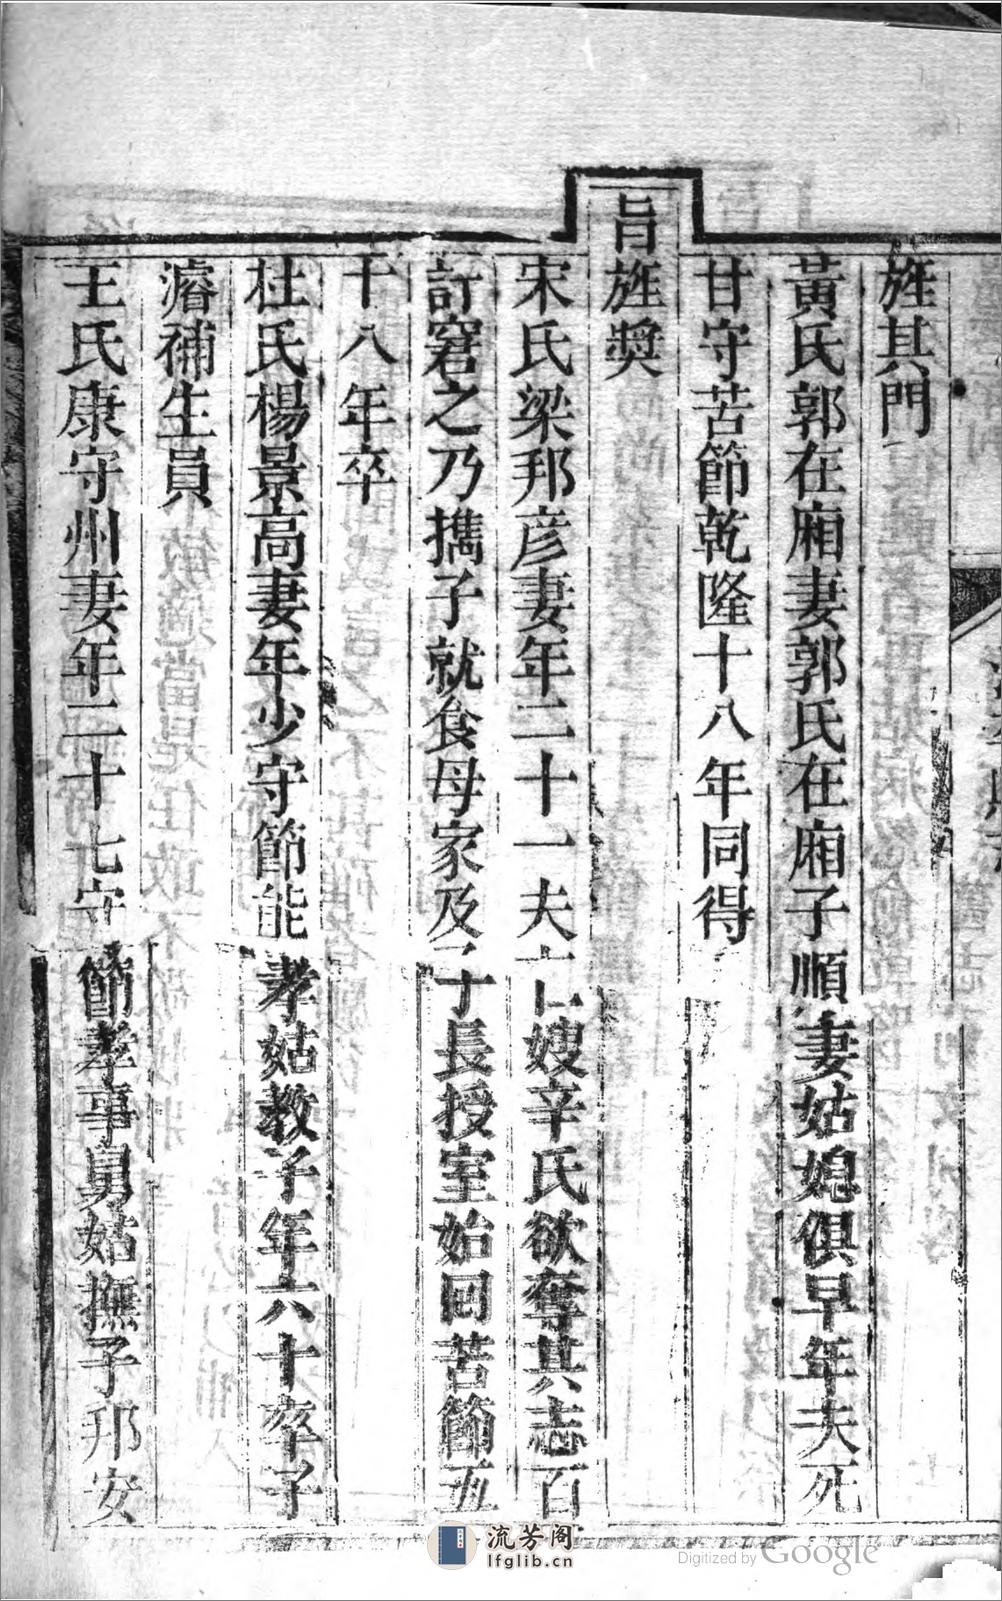 旌其門
黃氏郭在廂妻郭氏在廂子順妻姑媳俱早年夫死
甘守苦節乾隆十八年同得
旨旌獎
宋氏梁邦彦妻年二十一夫亡嫂辛氏欲奪其志百
計窘之乃攜子就食母家及子長授室始回苦節五
十八年卒
杜氏楊景高妻年少守節能孝姑教子年六十卒子
濬補生員
王氏康守州妻年二十七守節孝事舅姑撫子邦安
流芳阁
lfglib.cn
Digitized by Google